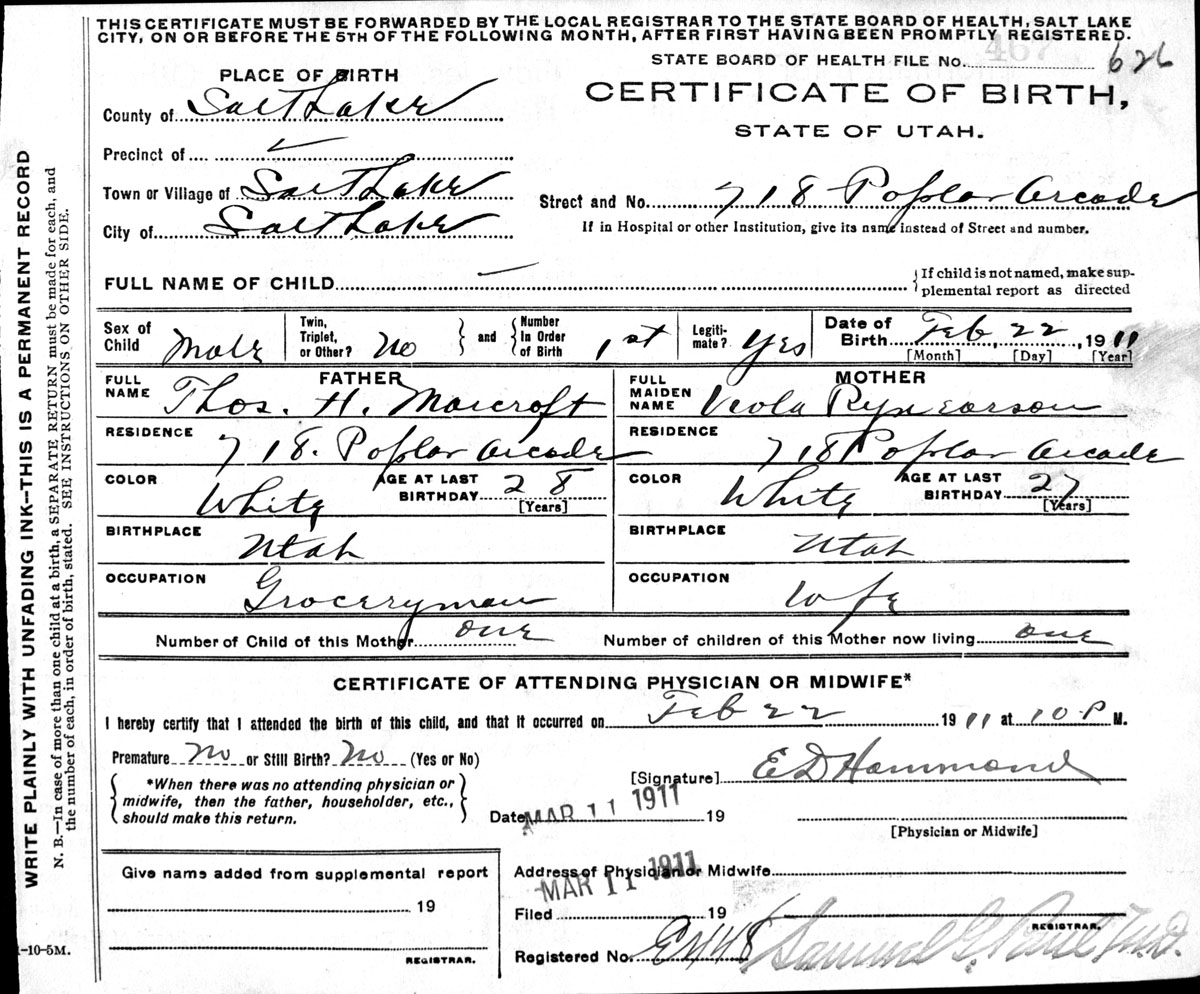 THIS CERTIFICATE MUST BE FORWARDED BY THE LOCAL REGISTRAR TO THE STATE BOARD OF HEALTH, SALT LAKE
CITY, ON OR BEFORE THE 5TH OF THE FOLLOWING MONTH, AFTER FIRST HAVING BEEN PROMPTLY REGISTERED.
467
STATE BOARD OF HEALTH FILE No. 626
PLACE OF BIRTH
CERTIFICATE OF BIRTH,
STATE OF UTAH.
County of Salt Lake
Precinct of
Town or Village of Salt Lake
Street and No. 718 Poplar Arcade
City of Salt Lake
If in Hospital or other Institution, give its name instead of Street and number.
FULL NAME OF CHILD
{If child is not named, make sup-
plemental report as directed
Sex of Child Male
Twin, Triplet, or Other? No } and { Number In Order of Birth 1st
Legiti-mate? Yes
Date of Birth Feb, 22, 1911
[Month] [Day] [Year]
FATHER
FULL NAME Thos. H. Morcroft
MOTHER
FULL MAIDEN NAME Veola Rynearson
RESIDENCE 718. Poplar Arcade
RESIDENCE 718 Poplar Arcade
COLOR White AGE AT LAST BIRTHDAY 28 [Years]
COLOR White AGE AT LAST BIRTHDAY 27 [Years]
BIRTHPLACE Utah
BIRTHPLACE Utah
OCCUPATION Groceryman
OCCUPATION Wife
Number of Child of this Mother one
Number of children of this Mother now living one
CERTIFICATE OF ATTENDING PHYSICIAN OR MIDWIFE*
I hereby certify that I attended the birth of this child, and that it occurred on Feb 22 1911 at 10 P M.
Premature No or Still Birth? No (Yes or No)
{ *When there was no attending physician or
midwife, then the father, householder, etc.,
should make this return. }
[Signature] E D Hammond
Date MAR 11 1911 19
[Physician or Midwife]
Give name added from supplemental report
19
REGISTRAR.
Address of Physician or Midwife
Filed MAR 11 1911 19
REGISTRAR.
Registered No. E1448 Samuel G. Paul M.D.
1-10-5M.
WRITE PLAINLY WITH UNFADING INK—THIS IS A PERMANENT RECORD
N. B.—In case of more than one child at a birth, a SEPARATE RETURN must be made for each, and
the number of each, in order of birth, stated. SEE INSTRUCTIONS ON OTHER SIDE.